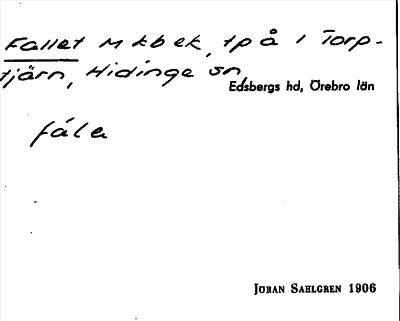 Fallet M kbek, tp å 1 Torp-
tjärn, Hidinge sn,
Edsbergs hd, Örebro län
fála
Jöran Sahlgren 1906